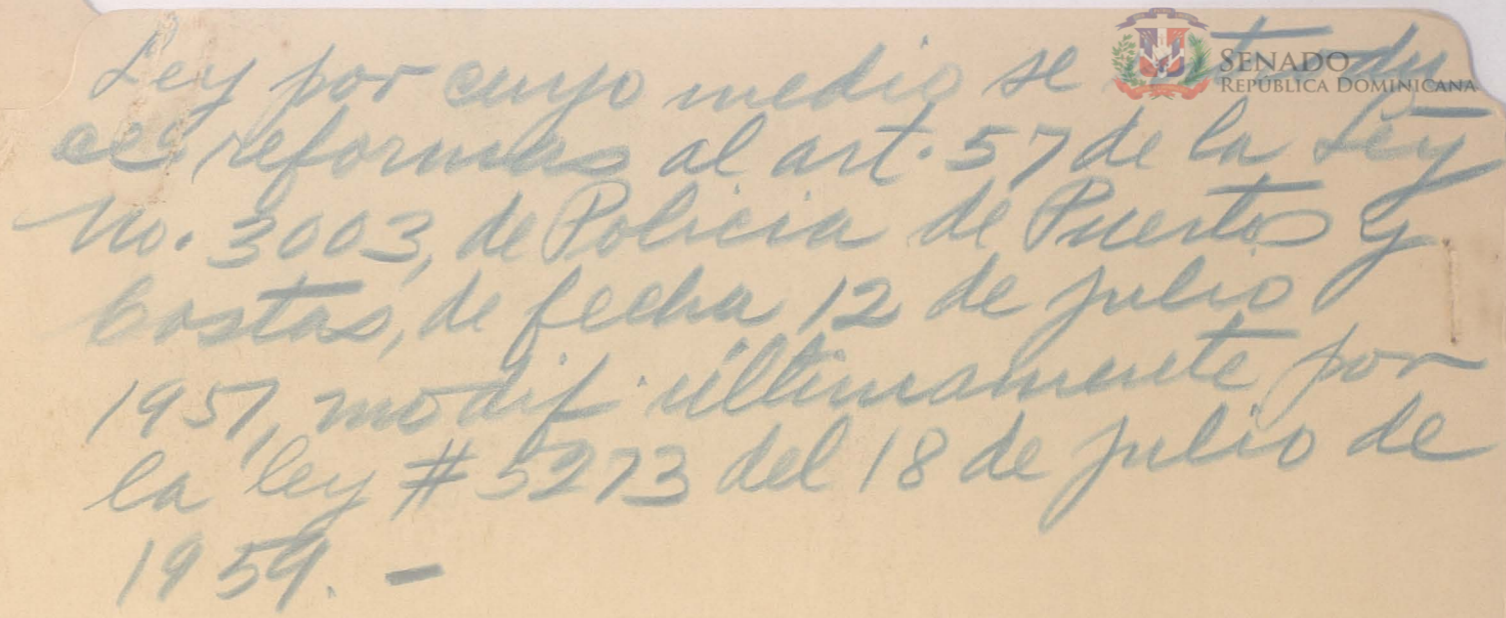 Ley por cuyo medio se introdu
cen reformas al art. 57 de la Ley
No. 3003, de Policia de Puertos y
Costas, de fecha 12 de julio
1951, modif. últimamente por
la ley # 5273 del 18 de julio de
1959. -
SENADO
REPÚBLICA DOMINICANA